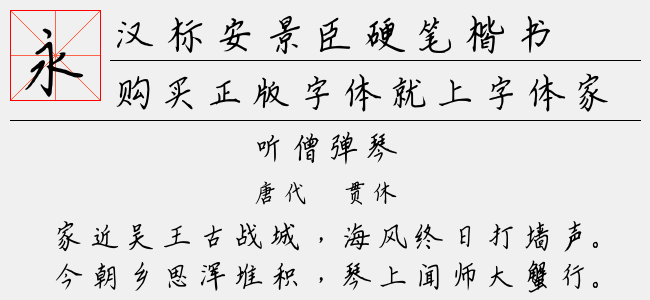 永
汉标安景臣硬笔楷书
购买正版字体就上字体家
听僧弹琴
唐代 贯休
家近吴王古战城，海风终日打墙声。
今朝乡思浑堆积，琴上闻师大蟹行。